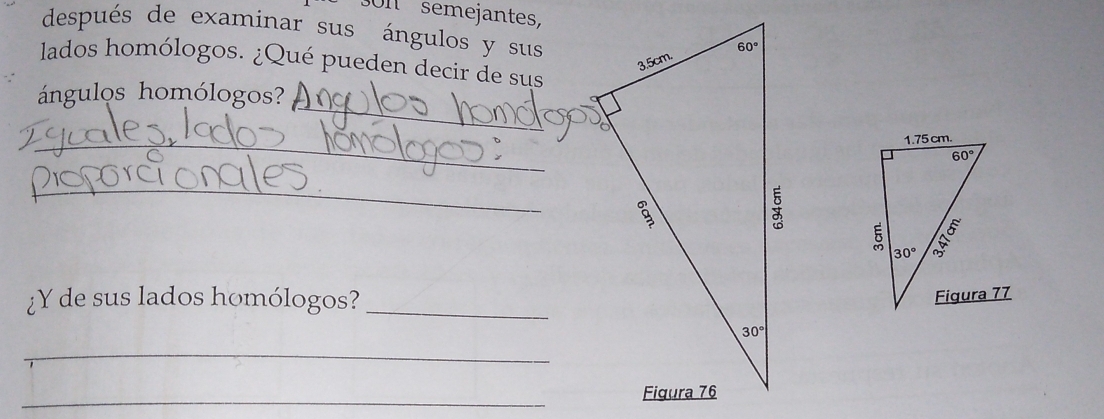 son semejantes,
después de examinar sus ángulos y sus
lados homólogos. ¿Qué pueden decir de sus
ángulos homólogos? Angulos homólogos:
Iguales, lados homólogos:
proporcionales.
¿Y de sus lados homólogos?
60°
3.5cm.
6 cm.
6.94 cm.
30°
Figura 76
1.75 cm.
60°
3 cm.
30°
3.47 cm.
Figura 77